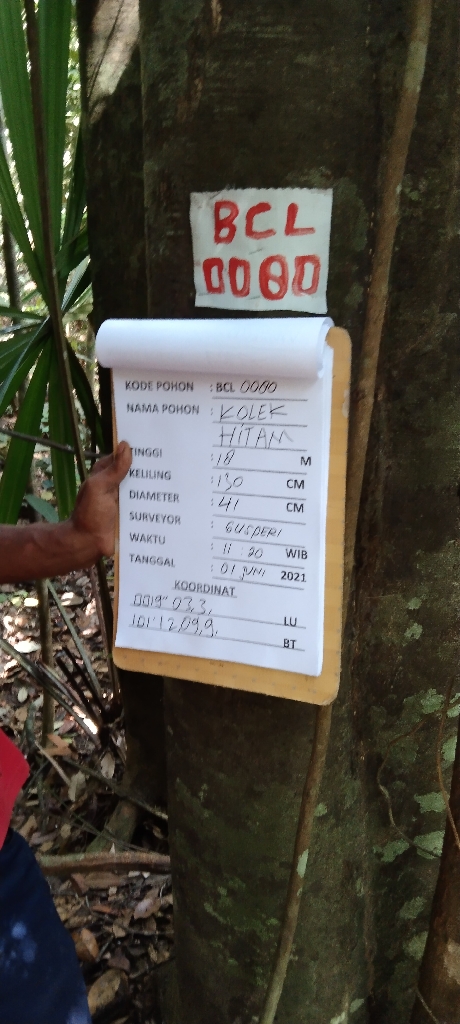 BCL
0080
KODE POHON : BCL 0080
NAMA POHON : KOLEK
HITAM
TINGGI : 18 M
KELILING : 130 CM
DIAMETER : 41 CM
SURVEYOR : GUSPERI
WAKTU : 11 20 WIB
TANGGAL : 01 JUNI 2021
KOORDINAT
0019" 03,3, LU
101"12,09,9, BT